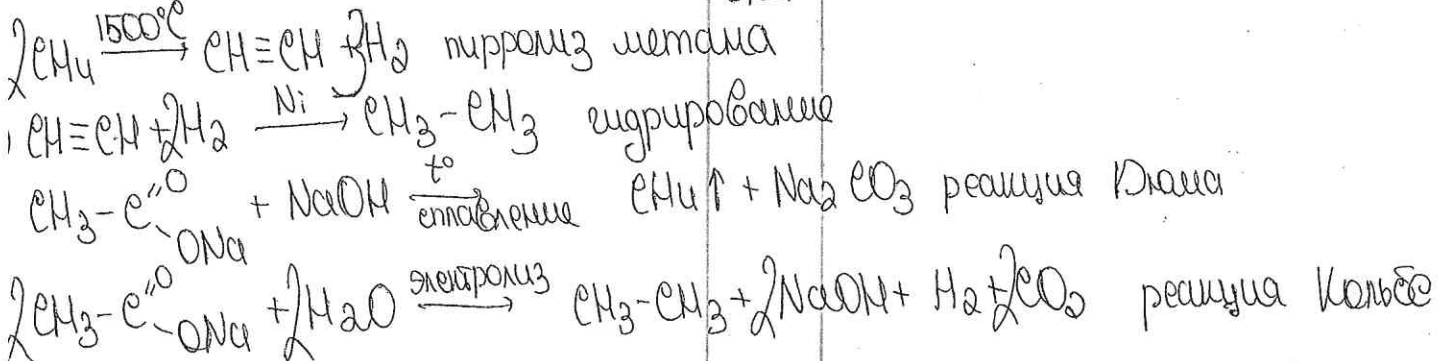 2CH₄ 1500°C → CH≡CH + 3H₂ пирролиз метана
CH≡CH + 2H₂ Ni → CH₃-CH₃ гидрирование
CH₃-C(=O)-ONa + NaOH t° → сплавление CH₄↑ + Na₂CO₃ реакция Дюма
2CH₃-C(=O)-ONa + 2H₂O электролиз → CH₃-CH₃ + 2NaOH + H₂ + 2CO₂ реакция Кольбе